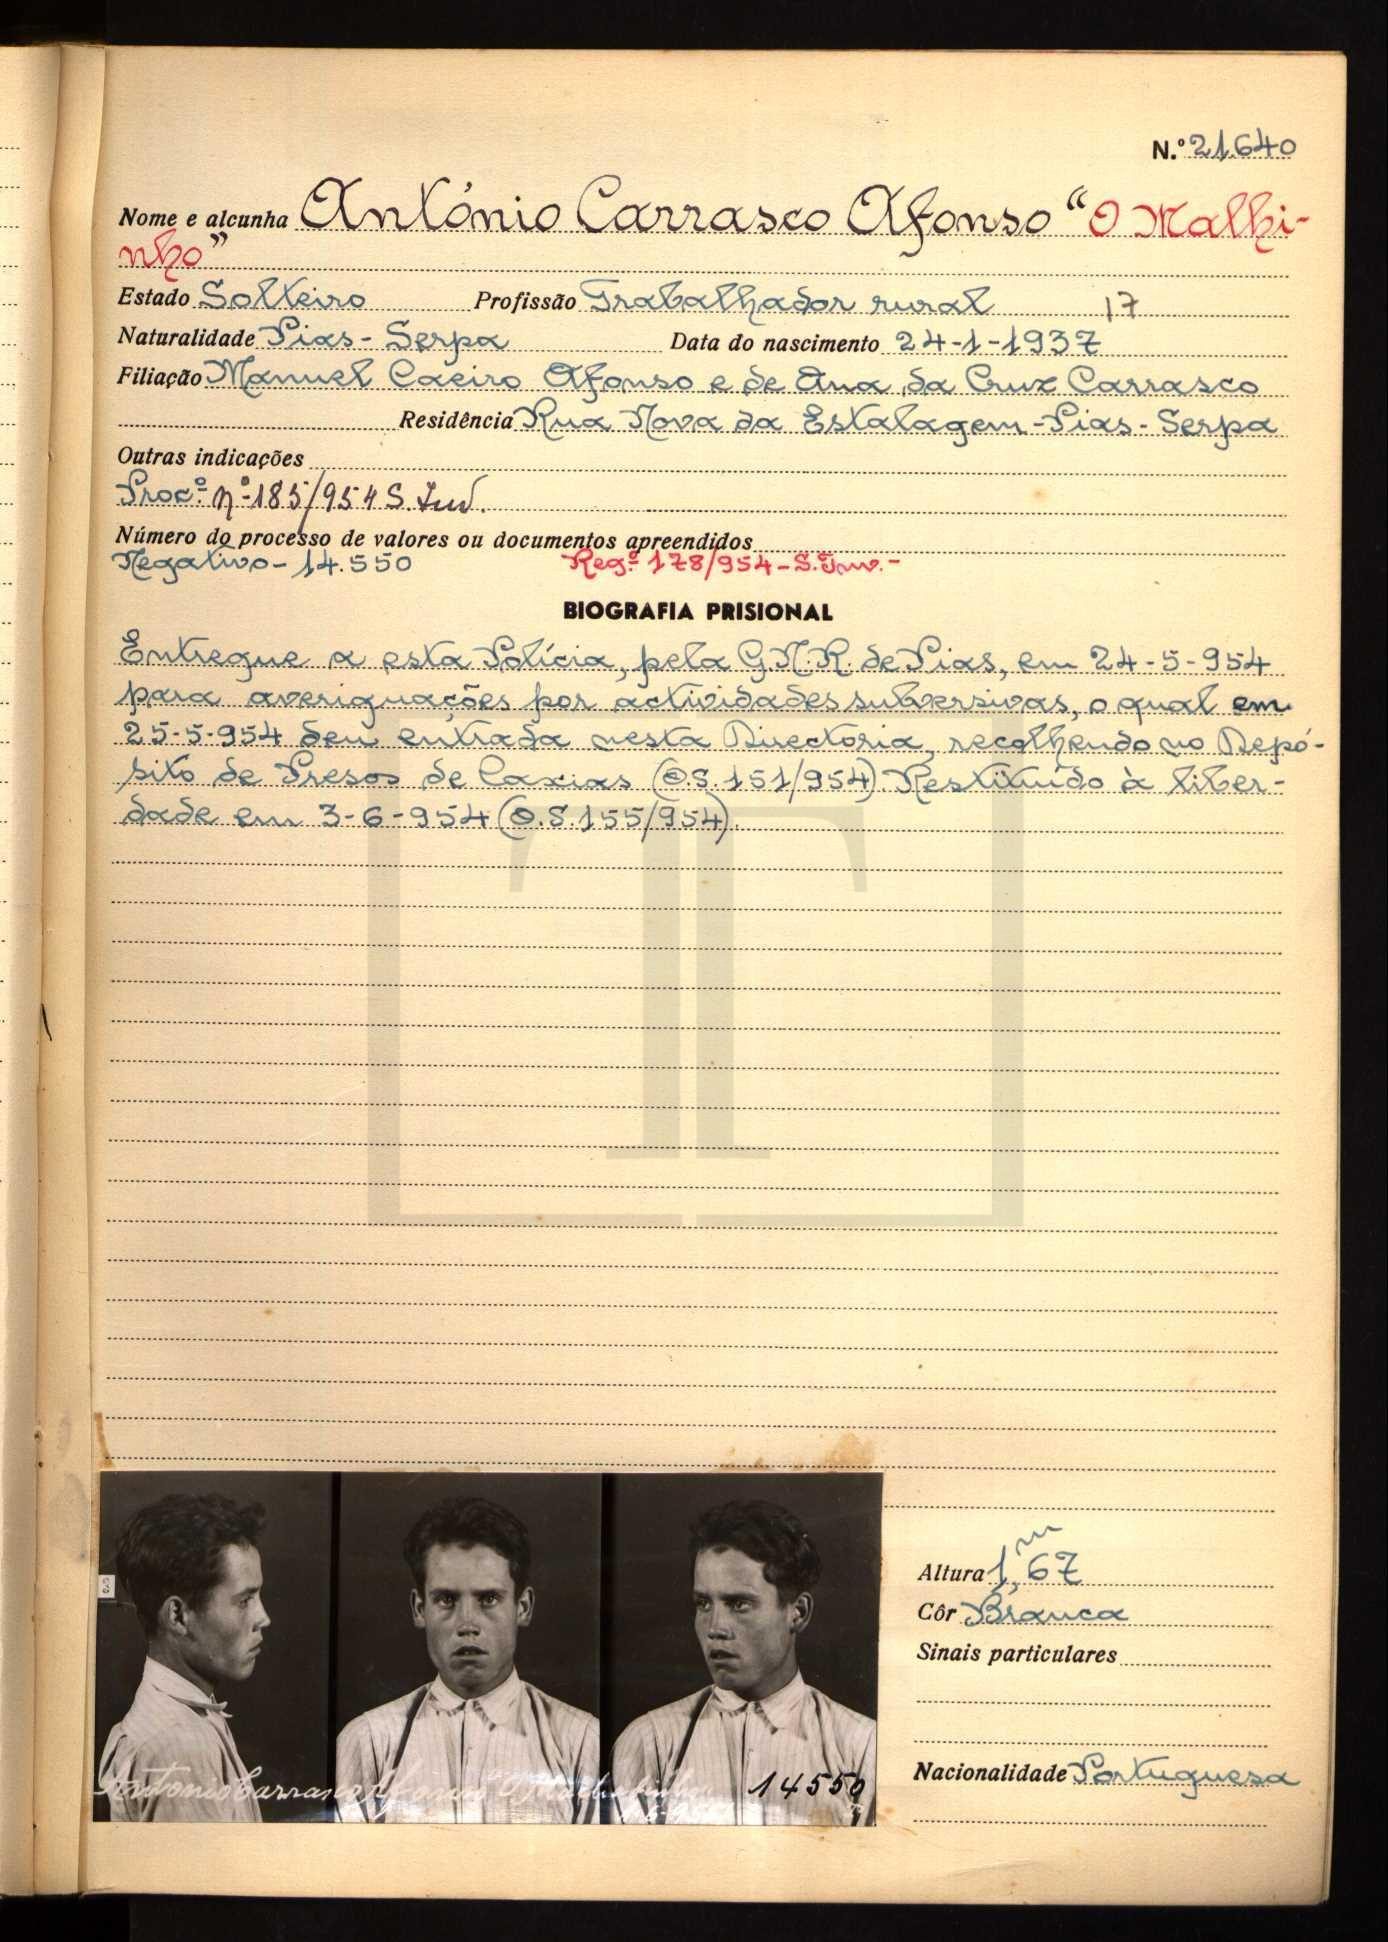 N.º 21.640
Nome e alcunha António Carrasco Afonso “O Malhi-
nho”
Estado Solteiro Profissão Trabalhador rural 17
Naturalidade Pias - Serpa Data do nascimento 24-1-1937
Filiação Manuel Caeiro Afonso e de Ana da Cruz Carrasco
Residência Rua Nova da Estalagem - Pias - Serpa
Outras indicações
Proc.º nº 185/954 S. Inv.
Número do processo de valores ou documentos apreendidos
Negativo - 14.550 Reg.º 178/954 - S. Inv. -
BIOGRAFIA PRISIONAL
Entregue a esta Polícia, pela G.N.R. de Pias, em 24-5-954
para averiguações por actividades subversivas, o qual em
25-5-954 deu entrada nesta Directoria, recolhendo no Depó-
sito de Presos de Caxias (O.S. 151/954). Restituído à liber-
dade em 3-6-954 (O.S. 155/954).
Altura 1,67 m
Côr Branca
Sinais particulares
Nacionalidade Portuguesa
Antonio Carrasco Afonso 14550